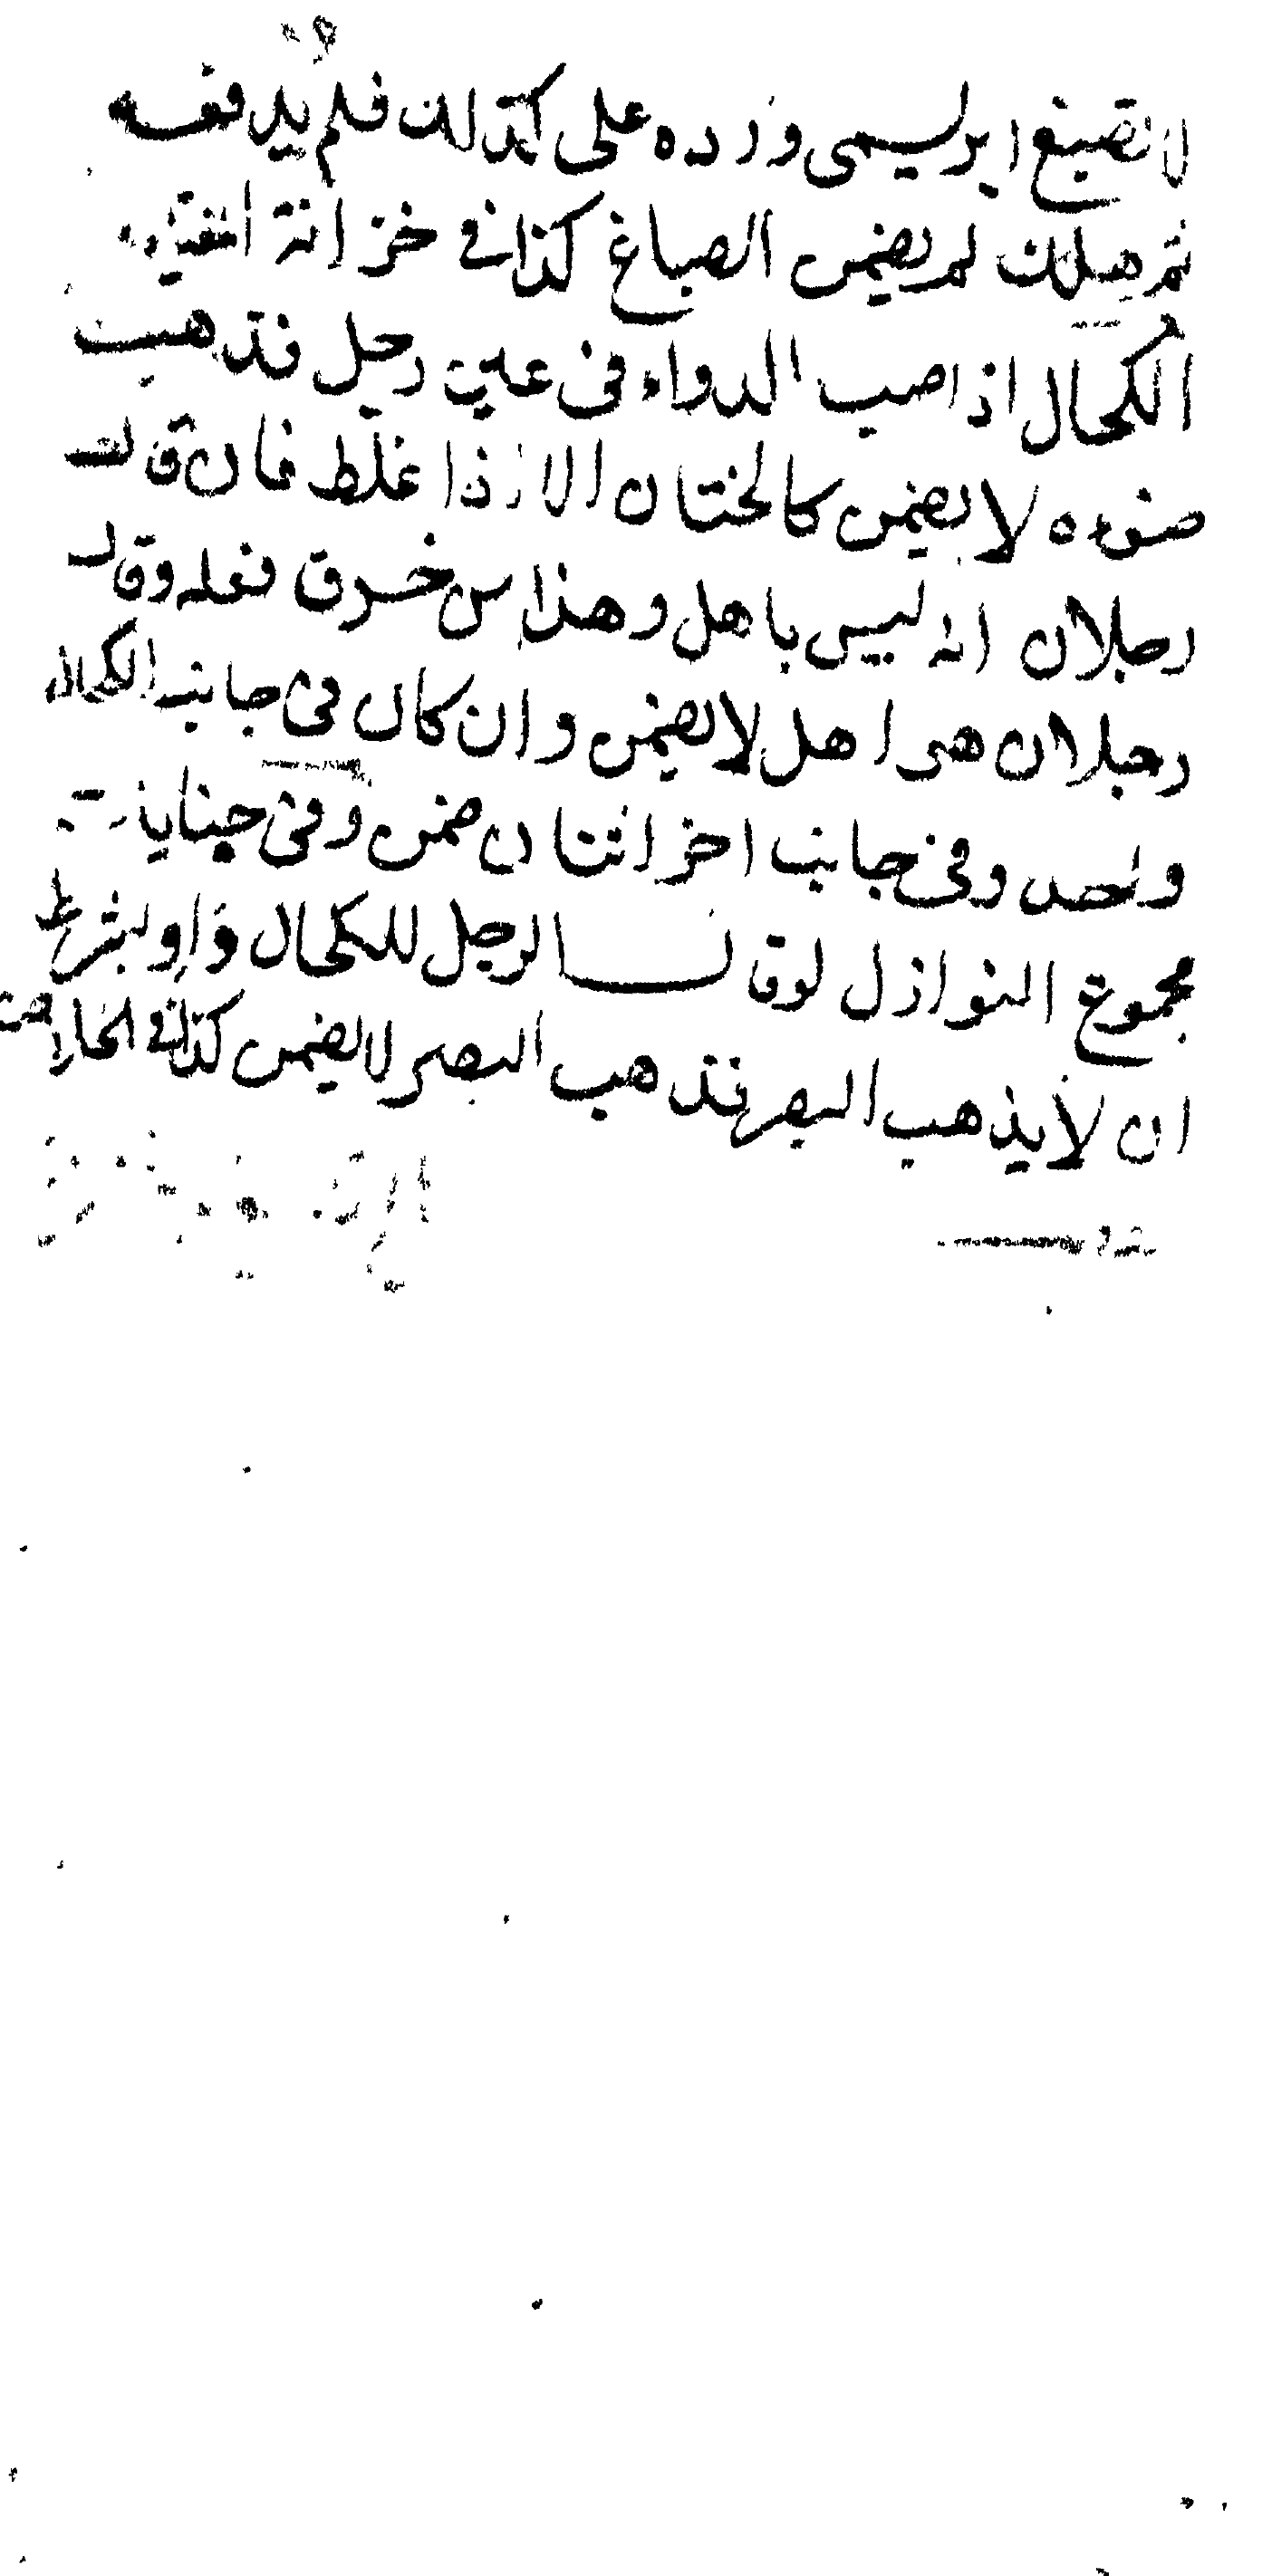 لا تصبغ ابريسمى ورده على كذلك فلم يدفعه
ثم هلك لم يضمن الصباغ كذا فى خزانة المفتين
الكحال اذا صب الدواء فى عين رجل فذهب
ضوءه لا يضمن كالختان الا اذا غلط فان قال
رجلان انه ليس باهل وهذا من خرق فعله وقال
رجلان هى اهل لا يضمن وان كان فى جانب الكحال
واحد وفى جانب اخر اثنان ضمن وفى جنايات
مجموع النوازل لو قال الرجل للكحال داو بشرط
ان لا يذهب البصر فذهب البصر لا يضمن كذا فى الخلاصة